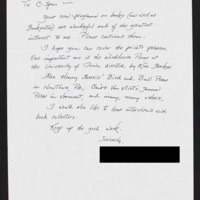 To C-Span —
Your new programs on books (as well as
Booknotes) are wonderful and of the greatest
interest to me. Please continue them.
I hope you can cover the private presses.
One important one is the Windhover Press at
the University of Iowa headed by Kim Merker.
Also Henry Morris' Bird and Bull Press
in Newtown, PA, Claire Van Vliet's Janus
Press in Vermont, and many, many others.
I would also like to hear interviews with
book collectors.
Keep up the good work.
Sincerely,